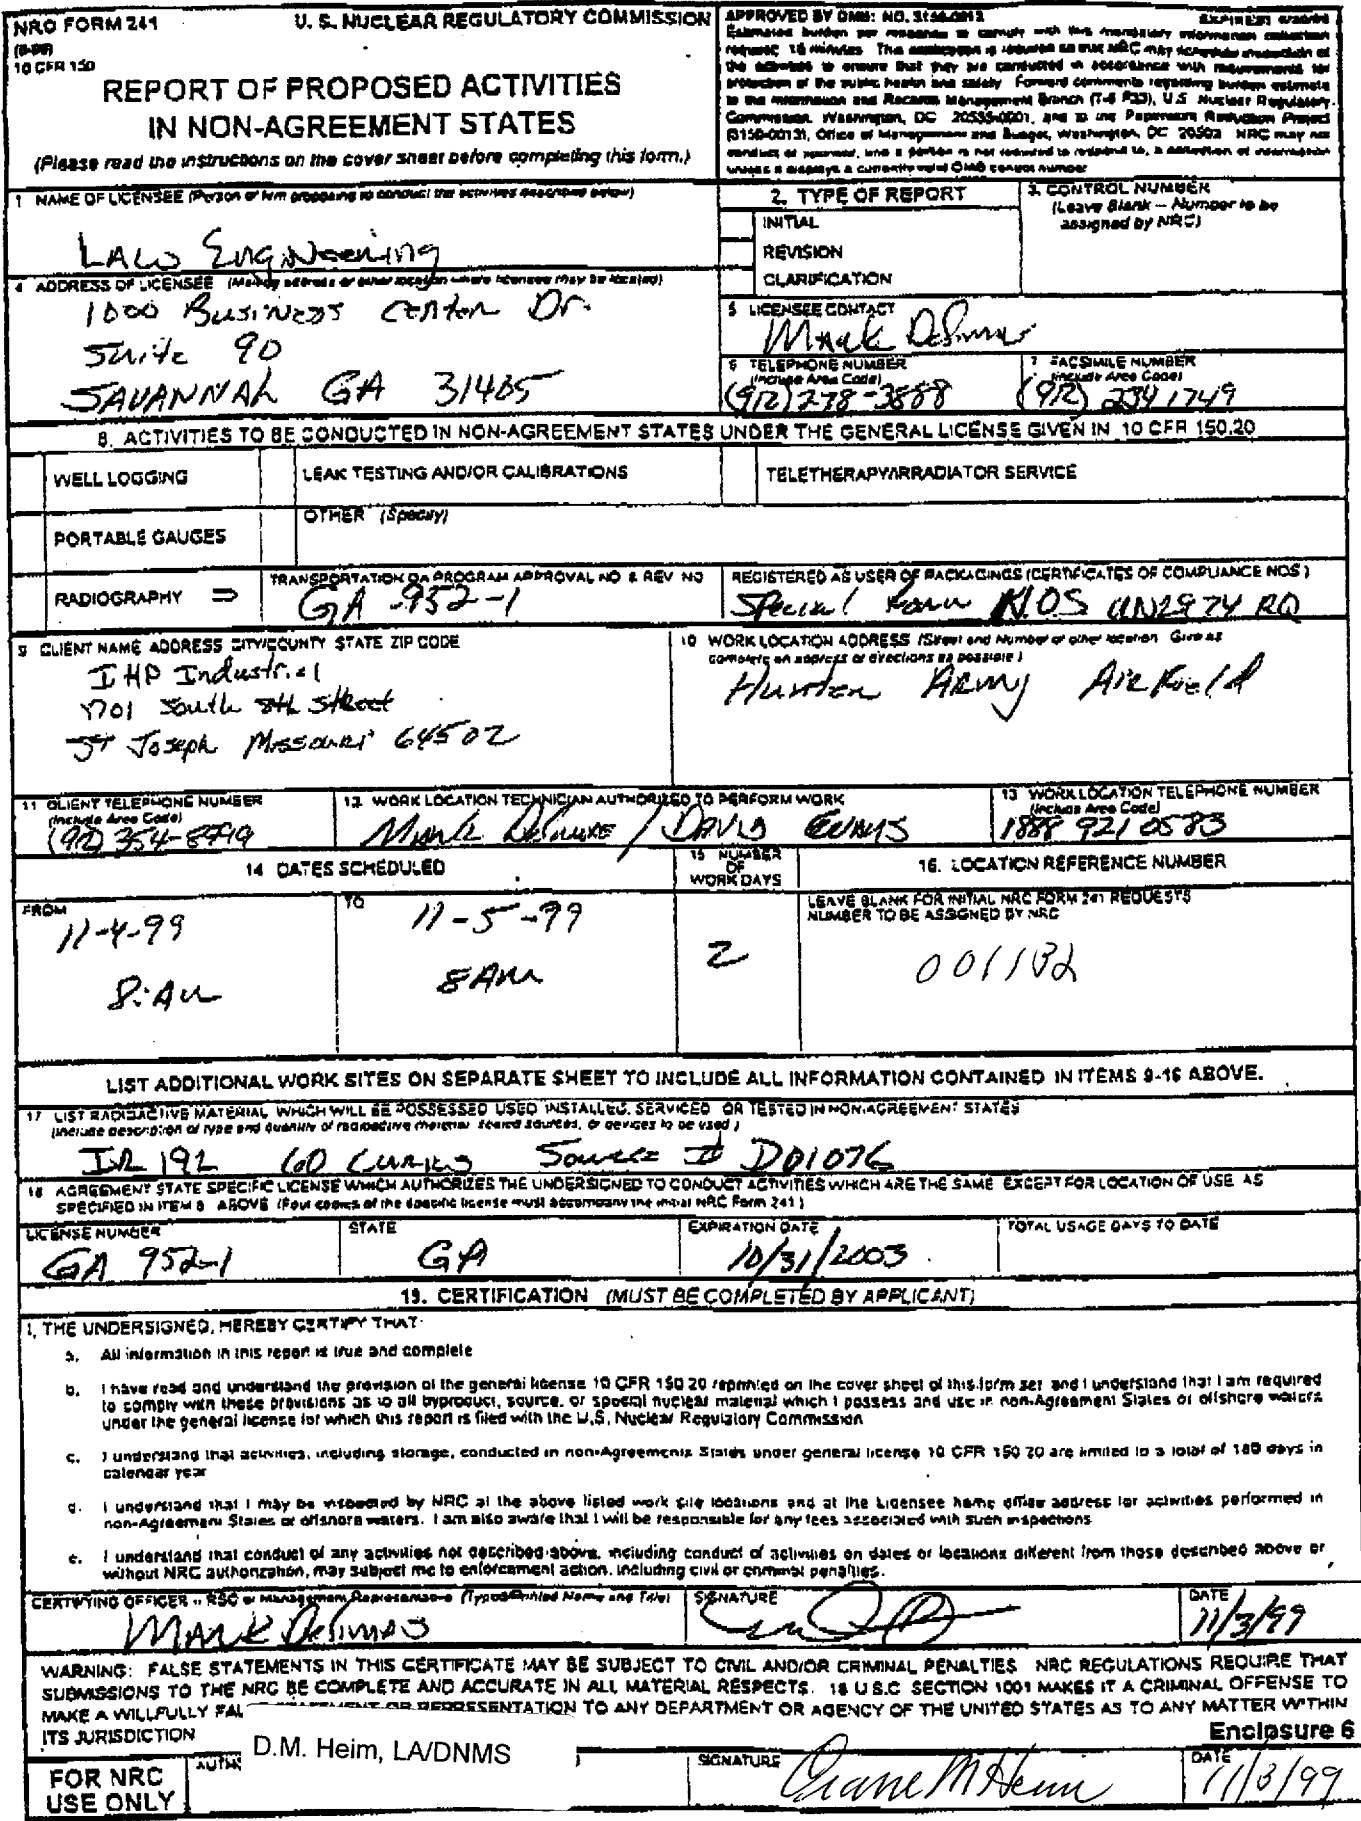 NRC FORM 241
U. S. NUCLEAR REGULATORY COMMISSION
10 CFR 150
REPORT OF PROPOSED ACTIVITIES
IN NON-AGREEMENT STATES
(Please read the instructions on the cover sheet before completing this form.)
APPROVED BY OMB: NO. 3150-0013
EXPIRES:
Estimated burden per response to comply with this mandatory information collection
request: 15 minutes. This notification is required so that NRC may schedule inspection of
the activities to ensure that they are conducted in accordance with requirements for
protection of the public health and safety. Forward comments regarding burden estimate
to the Information and Records Management Branch (T-6 F33), U.S. Nuclear Regulatory
Commission, Washington, DC 20555-0001, and to the Paperwork Reduction Project
(3150-0013), Office of Management and Budget, Washington, DC 20503. NRC may not
conduct or sponsor, and a person is not required to respond to, a collection of information
unless it displays a currently valid OMB control number
1 NAME OF LICENSEE (Person or firm proposing to conduct the activities described below)
LAW Engineering
2. TYPE OF REPORT
INITIAL
REVISION
CLARIFICATION
3. CONTROL NUMBER
(Leave Blank – Number to be
assigned by NRC)
4 ADDRESS OF LICENSEE (Mailing address or other location where licensee may be located)
1000 Business Center Dr.
Suite 90
SAVANNAH GA 31405
5 LICENSEE CONTACT
Mark
6 TELEPHONE NUMBER
(Include Area Code)
(912) 278-3888
7 FACSIMILE NUMBER
(Include Area Code)
(912) 234 1749
8. ACTIVITIES TO BE CONDUCTED IN NON-AGREEMENT STATES UNDER THE GENERAL LICENSE GIVEN IN 10 CFR 150.20
WELL LOGGING
LEAK TESTING AND/OR CALIBRATIONS
TELETHERAPY/IRRADIATOR SERVICE
PORTABLE GAUGES
OTHER (Specify)
RADIOGRAPHY ⇒
TRANSPORTATION QA PROGRAM APPROVAL NO & REV NO
GA -952-1
REGISTERED AS USER OF PACKAGINGS (CERTIFICATES OF COMPLIANCE NOS)
Special Form N.O.S UN2974 RQ
9 CLIENT NAME ADDRESS CITY/COUNTY STATE ZIP CODE
IHP Industrial
1701 South 8th Street
ST Joseph Missouri 64502
10 WORK LOCATION ADDRESS (Street and Number or other location Give as
complete an address or directions as possible)
Hunter Army Airfield
11 CLIENT TELEPHONE NUMBER
(Include Area Code)
(912) 354-8999
12 WORK LOCATION TECHNICIAN AUTHORIZED TO PERFORM WORK
Mark / David Evans
13 WORK LOCATION TELEPHONE NUMBER
(Include Area Code)
1888 921 0583
14 DATES SCHEDULED
15 NUMBER
OF
WORK DAYS
16. LOCATION REFERENCE NUMBER
FROM
11-4-99
8:AM
TO
11-5-99
8AM
2
LEAVE BLANK FOR INITIAL NRC FORM 241 REQUESTS
NUMBER TO BE ASSIGNED BY NRC
LIST ADDITIONAL WORK SITES ON SEPARATE SHEET TO INCLUDE ALL INFORMATION CONTAINED IN ITEMS 9-16 ABOVE.
17 LIST RADIOACTIVE MATERIAL WHICH WILL BE POSSESSED USED INSTALLED, SERVICED OR TESTED IN NON-AGREEMENT STATES
(Include description of type and quantity of radioactive material sealed sources, or devices to be used)
IR 192 60 Curies Source # D01076
18 AGREEMENT STATE SPECIFIC LICENSE WHICH AUTHORIZES THE UNDERSIGNED TO CONDUCT ACTIVITIES WHICH ARE THE SAME EXCEPT FOR LOCATION OF USE AS
SPECIFIED IN ITEM 8 ABOVE (Four copies of the specific license must accompany the initial NRC Form 241)
LICENSE NUMBER
GA 952-1
STATE
GA
EXPIRATION DATE
10/31/2003
TOTAL USAGE DAYS TO DATE
19. CERTIFICATION (MUST BE COMPLETED BY APPLICANT)
I, THE UNDERSIGNED, HEREBY CERTIFY THAT:
a. All information in this report is true and complete
b. I have read and understand the provision of the general license 10 CFR 150 20 reprinted on the cover sheet of this form set and I understand that I am required
to comply with these provisions as to all byproduct, source, or special nuclear material which I possess and use in non-Agreement States or offshore waters
under the general license for which this report is filed with the U.S. Nuclear Regulatory Commission
c. I understand that activities, including storage, conducted in non-Agreements States under general license 10 CFR 150 20 are limited to a total of 180 days in
calendar year
d. I understand that I may be inspected by NRC at the above listed work site locations and at the Licensee home office address for activities performed in
non-Agreement States or offshore waters. I am also aware that I will be responsible for any fees associated with such inspections
e. I understand that conduct of any activities not described above, including conduct of activities on dates or locations different from those described above or
without NRC authorization, may subject me to enforcement action, including civil or criminal penalties.
CERTIFYING OFFICER – RSO or Management Representative (Typed/Printed Name and Title)
MARK
SIGNATURE
DATE
11/3/99
WARNING: FALSE STATEMENTS IN THIS CERTIFICATE MAY BE SUBJECT TO CIVIL AND/OR CRIMINAL PENALTIES NRC REGULATIONS REQUIRE THAT
SUBMISSIONS TO THE NRC BE COMPLETE AND ACCURATE IN ALL MATERIAL RESPECTS. 18 U.S.C SECTION 1001 MAKES IT A CRIMINAL OFFENSE TO
MAKE A WILLFULLY FAL STATEMENT OR REPRESENTATION TO ANY DEPARTMENT OR AGENCY OF THE UNITED STATES AS TO ANY MATTER WITHIN
ITS JURISDICTION
Enclosure 6
FOR NRC
USE ONLY
D.M. Heim, LA/DNMS
SIGNATURE
Diane M Heim
DATE
11/3/99